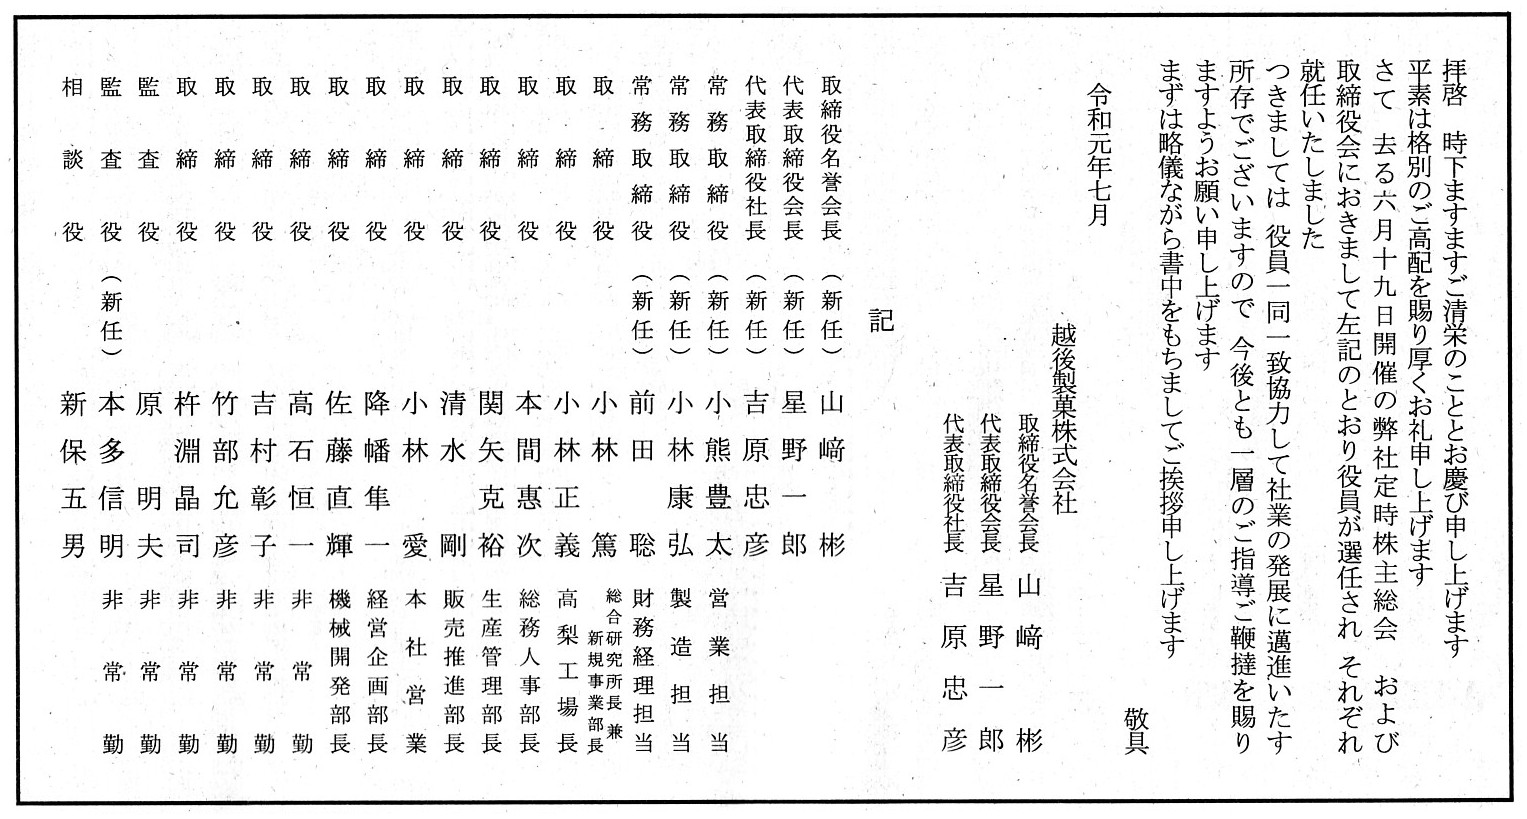 拝啓　時下ますますご清栄のこととお慶び申し上げます
平素は格別のご高配を賜り厚くお礼申し上げます
さて　去る六月十九日開催の弊社定時株主総会　および
取締役会におきまして左記のとおり役員が選任され　それぞれ
就任いたしました
つきましては　役員一同一致協力して社業の発展に邁進いたす
所存でございますので　今後とも一層のご指導ご鞭撻を賜り
ますようお願い申し上げます
まずは略儀ながら書中をもちましてご挨拶申し上げます
敬具
令和元年七月
越後製菓株式会社
取締役名誉会長　山﨑　彬
代表取締役会長　星野一郎
代表取締役社長　吉原忠彦
記
取締役名誉会長（新任）山﨑　彬
代表取締役会長（新任）星野一郎
代表取締役社長（新任）吉原忠彦
常務取締役（新任）小熊豊太　営業担当
常務取締役（新任）小林康弘　製造担当
常務取締役（新任）前田　聡　財務経理担当
取締役　小林　篤　総合研究所長兼新規事業部長
取締役　小林正義　高梨工場長
取締役　本間惠次　総務人事部長
取締役　関矢克裕　生産管理部長
取締役　清水　剛　販売推進部長
取締役　小林　愛　本社営業
取締役　降幡隼一　経営企画部長
取締役　佐藤直輝　機械開発部長
取締役　高石恒一　非常勤
取締役　吉村彰子　非常勤
取締役　竹部允彦　非常勤
取締役　杵淵晶司　非常勤
監査役　原　明夫　非常勤
監査役（新任）本多信明　非常勤
相談役　新保五男